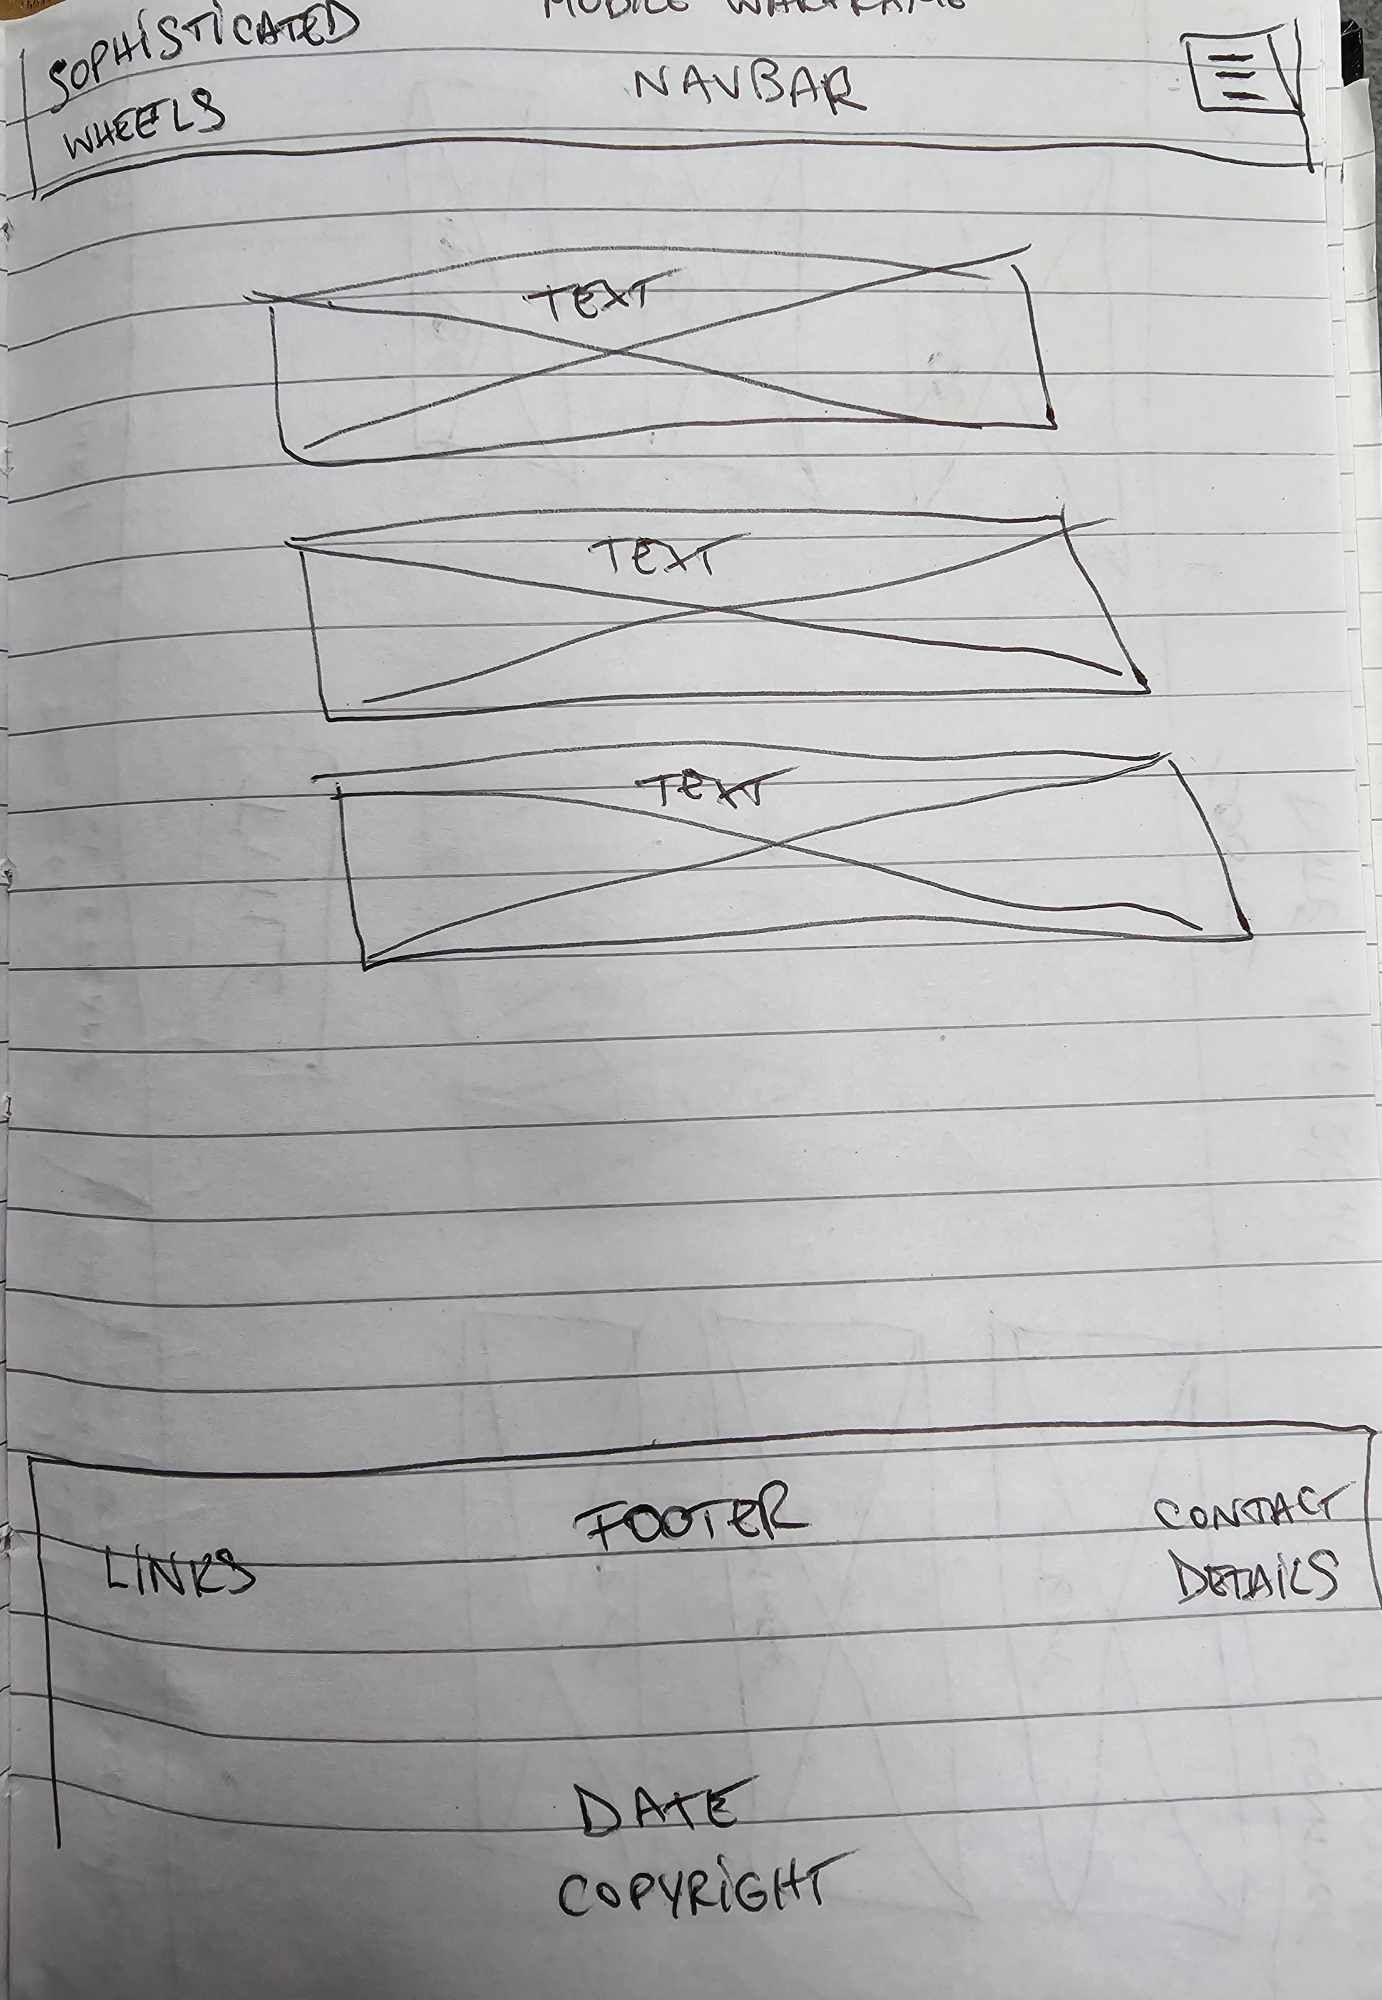 MOBILE WAREFRAME
SOPHISTICATED
WHEELS
NAVBAR
TEXT
TEXT
TEXT
FOOTER
LINKS
CONTACT
DETAILS
DATE
COPYRIGHT